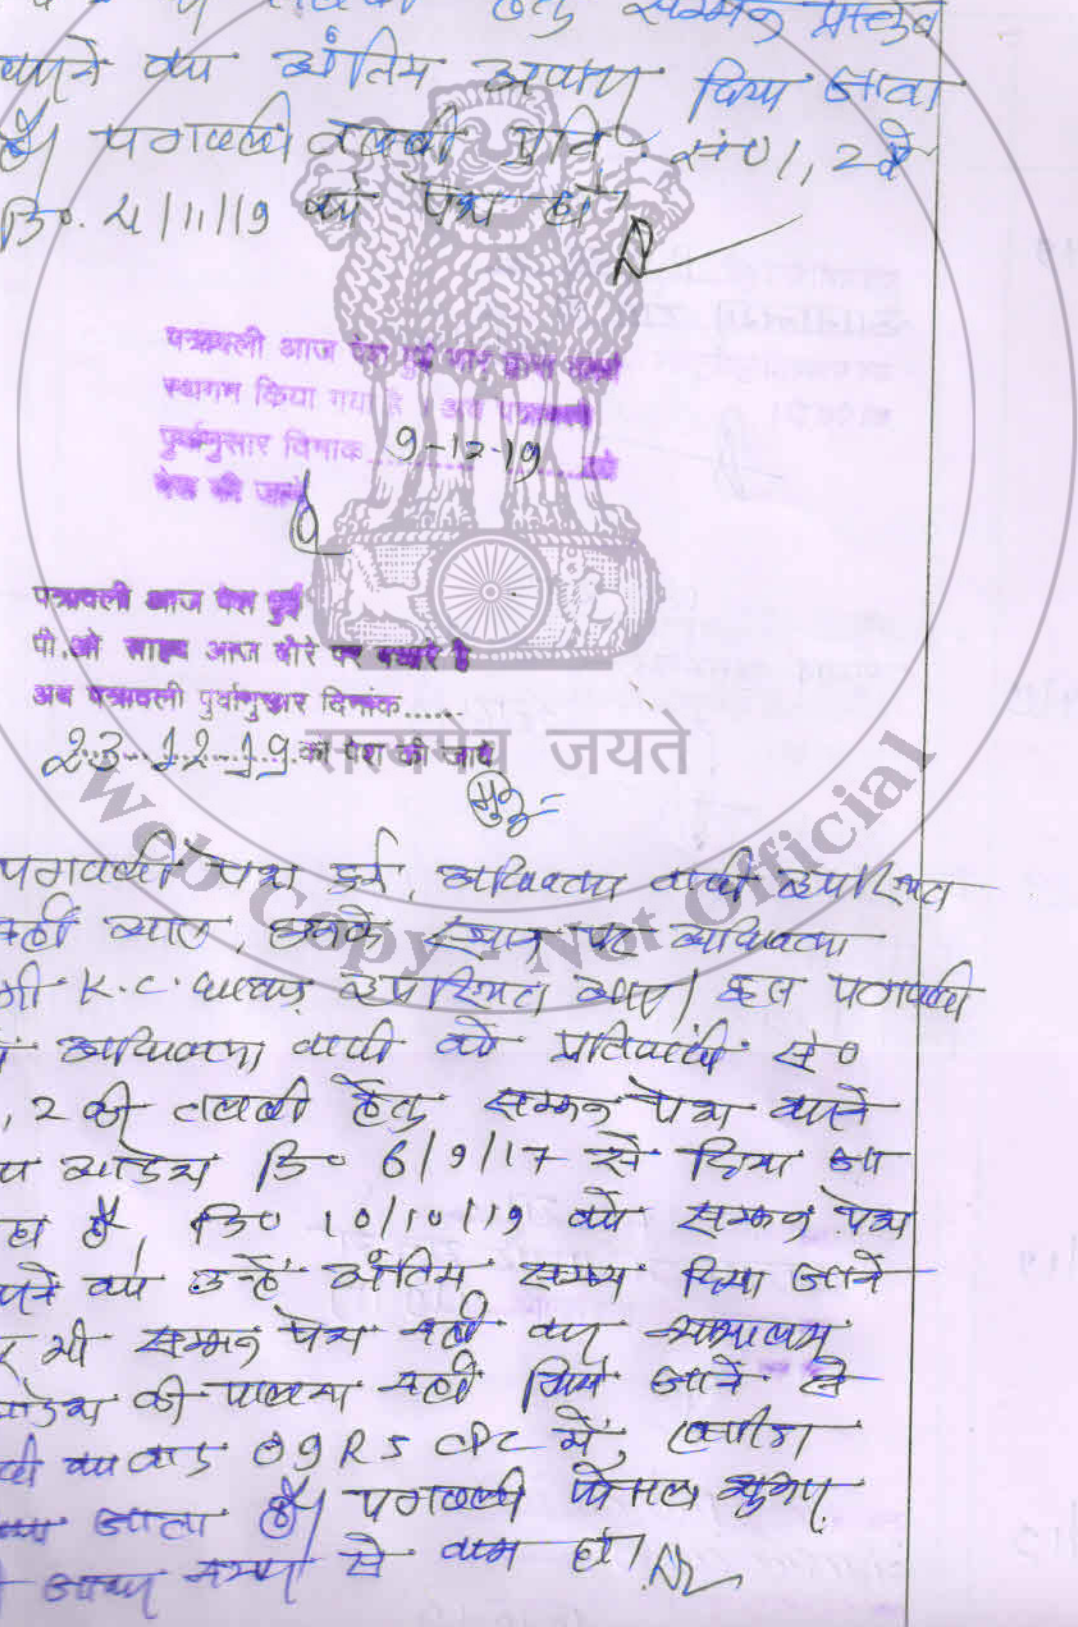 हेतु सम्मन
का अंतिम अवसर दिया जाता
है। पत्रावली तलबी प्रति. सं0 1, 2 के
दि0. 21/11/19 को पेश हो
पत्रावली आज पेश हुई
स्थगन किया गया है । अब पत्रावली
पुर्वानुसार दिनांक 9-12-19 को
पेश की जावे
पत्रावली आज पेश हुई
पी.ओ साहब आज दौरे पर पधारे है
अब पत्रावली पुर्वानुसार दिनांक......
23-12-19 को पेश की जावे
सत्यमेव जयते
Web Copy - Not Official
पत्रावली पेश हुई, अधिवक्ता वादी उपस्थित
नहीं आए, उनके स्थान पर अधिवक्ता
श्री K.C. उपस्थित आए। इस पत्रावली
में अधिवक्ता वादी को प्रतिवादी सं0
1, 2 की तलबी हेतु सम्मन पेश करने
का आदेश दि0 6/9/17 से दिया जा
रहा है, दि0 10/10/19 को सम्मन पेश
करने का उन्हें अंतिम समय दिया जाने
पर भी सम्मन पेश नहीं कर न्यायालय
आदेश की पालना नहीं किये जाने से
वादी का वाद O9 R5 CPC में, खारीज
किया जाता है। पत्रावली फैसल शुमार
नम्बर से कम हो।